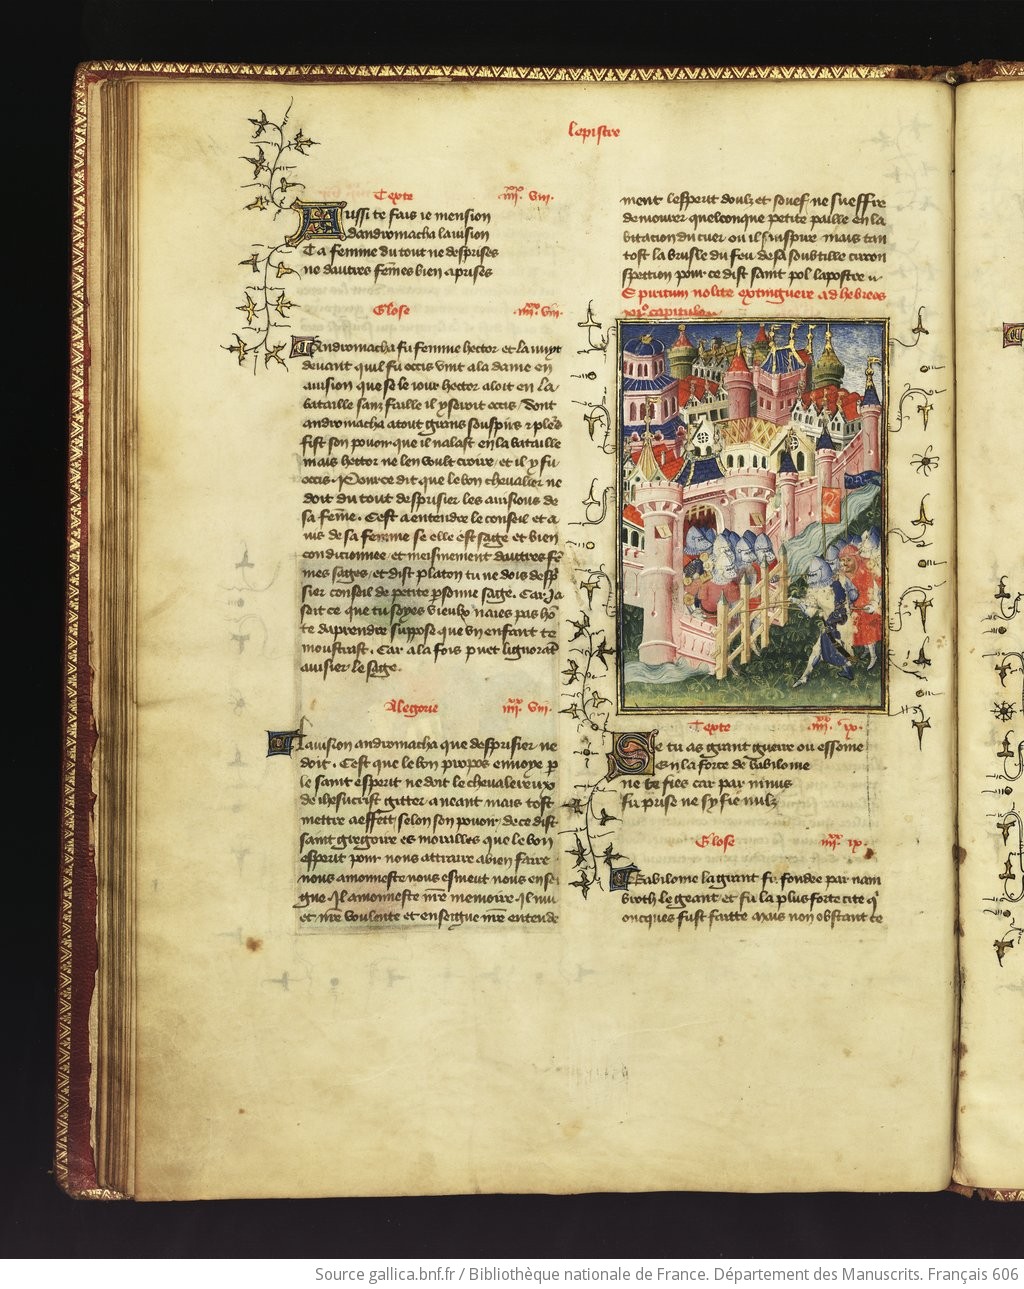 lepistre
Texte iiii xx. viii.
Aussi te fais ie mension
dandromacha lauision
Ta femme du tout ne desprises
ne dautres femes bien aprises
Glose iiii xx. viii.
Andromacha fu femme hector et la nuyt
deuant quil fu occis vint a la dame en
auision que se le iour hector aloit en la
bataille sanz faille il y seroit occis / dont
andromacha atout grans souspirs et plers
fist son pouoir que il nalast en la bataille
mais hector ne len voult croire et il y fu
occis. Pource dit que le bon cheualier ne
doit du tout desprisier les auisions de
sa feme. Cest a entendre le conseil et a
uis de sa femme se elle est sage et bien
condicionnee et meismement dautres fe
mes sages / et dist platon tu ne dois desp
sier conseil de petite psonne sage. Car ja
soit ce que tu soyes vieulx naies pas hon
te daprendre suppose que vn enfant te
monstrast. Car a la fois puet lignorant
auisier le sage.
Alegorie iiii xx. viii.
La uision andromacha que desprisier ne
doit. Cest que le bon propos enuoye p
le saint esperit ne doit le cheualereux
de ihesucrist gitter a neant mais tost
mettre a effect selon son pouoir. de ce dist
saint gregoire es moralles que le bon
esperit pour nous attraire a bien faire
nous amonneste nous esmeut nous ensei
gne. Il amonneste nre memoire Il mu
et nre voulente et enseigne nre entende
ment lesperit doulz et souef ne sueffre
demourer quelconque petite paille en la
bitacion du cuer ou il sinspire mais tan
tost la brusle du feu de sa soubtille circon
spection pour ce dist saint pol lapostre
Spiritum nolite extinguere ad hebreos
capitulo
Texte iiii xx. ix.
Se tu as grant guerre ou essoine
En la force de babiloine
ne te fies car par ninus
fu prise ne sy fie nulz
Glose iiii xx. ix.
Babiloine la grant fu fondee par nam
broth le geant et fu la plus forte cite q
oncques fust faitte mais non obstant te
Source gallica.bnf.fr / Bibliothèque nationale de France. Département des Manuscrits. Français 606